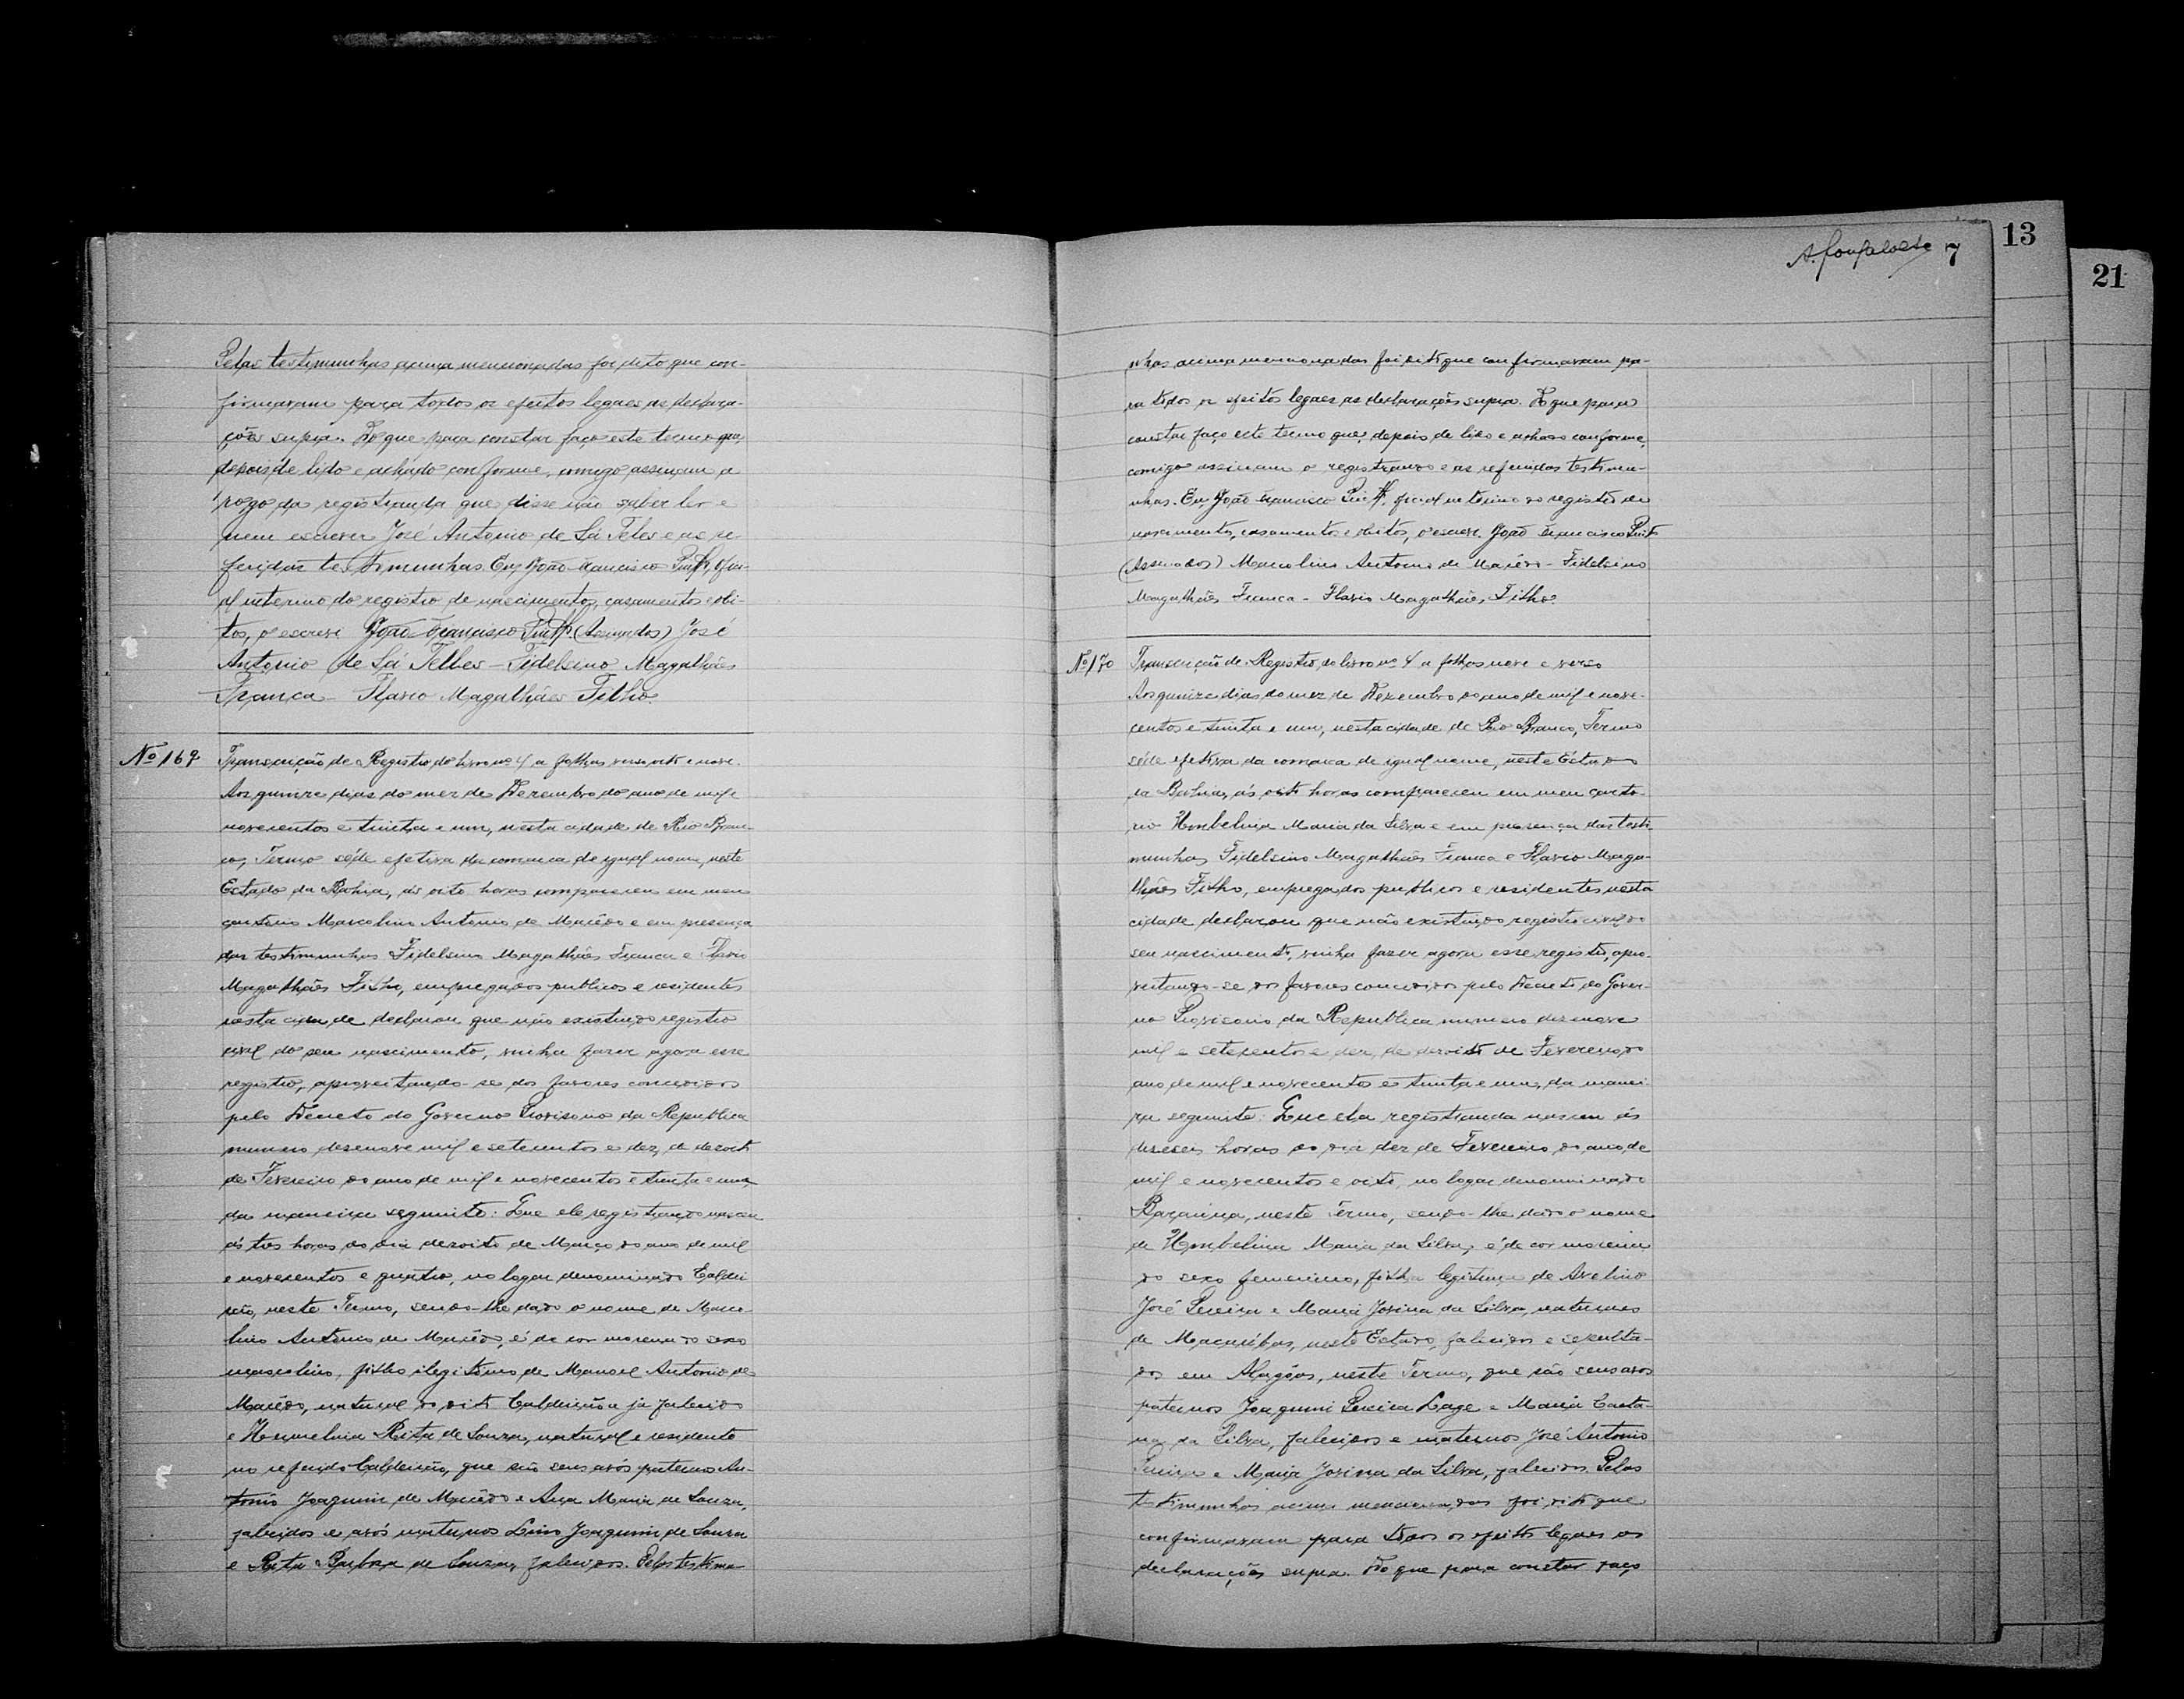 A.
7
13
21
Pelas testimunhas acima mencionadas foi dito que con-
firmavam para todos os efeitos legaes as declara-
ções supra. Do que para constar faço este termo que
depois de lido e achado conforme, comigo assinam a
rogo da registranda que disse não saber ler e
nem escrever José Antonio de Sá Teles e as re-
feridas testimunhas. Eu, João Francisco, ofici-
al interino do registro de nascimentos, casamentos e obi-
tos, o escrevi João Francisco (Assinados) José
Antonio de Sá Telles - Fidelsino Magalhães
Franca - Flavio Magalhães Filho.
Nº 169 Transcrição de Registro do livro nº 4 a folhas verso oito e nove.
Aos quinze dias do mez de Dezembro do ano de mil e
novecentos e trinta e um, nesta cidade de Rio Bran-
co, Termo séde efetiva da comarca de igual nome, neste
Estado da Bahia, ás oito horas compareceu em meu
cartorio Marcolino Antonio de Macêdo e em presença
das testimunhas Fidelsino Magalhães Franca e Flavio
Magalhães Filho, empregados publicos e residentes
nesta cidade declarou que não existindo registro
civil do seu nascimento, vinha fazer agora esse
registro, aproveitando-se dos favores concedidos
pelo Decreto do Governo Provisorio da Republica
numero dezenove mil e setecentos e dez, de dezoito
de Fevereiro do ano de mil e novecentos e trinta e um,
da maneira seguinte: Que ele registrando nasceu
ás tres horas do dia dezoito de Março do ano de mil
e novecentos e quatro, no logar denominado Caldei
rão, neste Termo, sendo-lhe dado o nome de Marco-
lino Antonio de Macêdo, é de cor morena do sexo
masculino, filho ilegitimo de Manoel Antonio de
Macêdo, natural do dito Caldeirão e já falecido
e Hermelina Rita de Souza, natural e residente
no referido Caldeirão, que são seus avós paternos An-
tonio Joaquim de Macêdo e Ana Maria de Souza,
falecidos e avós maternos Lino Joaquim de Souza
e Rita Barbza de Souza, falecidos. Pelas testimu-
nhas acima mencionadas foi dito que confirmavam pa-
ra todos os efeitos legaes as declarações supra. Do que para
constar faço este termo que, depois de lido e achado conforme,
comigo assinam o registrando e as referidas testimu-
nhas. Eu, João Francisco, oficial interino do registro de
nascimentos, casamentos e obitos, o escrevi. João Francisco
(Assinados) Marcolino Antonio de Macêdo - Fidelsino
Magalhães Franca - Flavio Magalhães Filho.
Nº 170 Transcrição de Registro do livro nº 4 a folhas nove e verso
Aos quinze dias do mez de Dezembro do ano de mil e nove-
centos e trinta e um, nesta cidade de Rio Branco, Termo
séde efetiva da comarca de igual nome, neste Estado
da Bahia, ás oito horas compareceu em meu carto-
rio Umbelina Maria da Silva e em presença das testi
munhas Fidelsino Magalhães Franca e Flavio Maga-
lhães Filho, empregados publicos e residentes nesta
cidade declarou que não existindo registro civil do
seu nascimento, vinha fazer agora esse registro, apro-
veitando-se dos favores concedidos pelo Decreto do Gover-
no Provisorio da Republica numero dezenove
mil e setecentos e dez, de dezoito de Fevereiro do
ano de mil e novecentos e trinta e um, da manei
ra seguinte: Que ela registranda nasceu ás
dezeseis horas do dia dez de Fevereiro do ano de
mil e novecentos e oito, no logar denominado
neste Termo, sendo-lhe dado o nome
de Umbelina Maria da Silva, é de cor morena
do sexo femenino, filha legitima de Avelino
José Pereira e Maria Jovina da Silva, naturaes
de Macaúbas, neste Estado, falecidos e sepulta-
dos em Alagôas, neste Termo, que são seus avós
paternos Joaquim Pereira Lage e Maria Caeta-
na da Silva, falecidos e maternos José Antonio
Pereira e Maria Jovina da Silva, falecidos. Pelas
testimunhas acima mencionadas foi dito que
confirmavam para todos os efeitos legaes as
declarações supra. Do que para constar faço